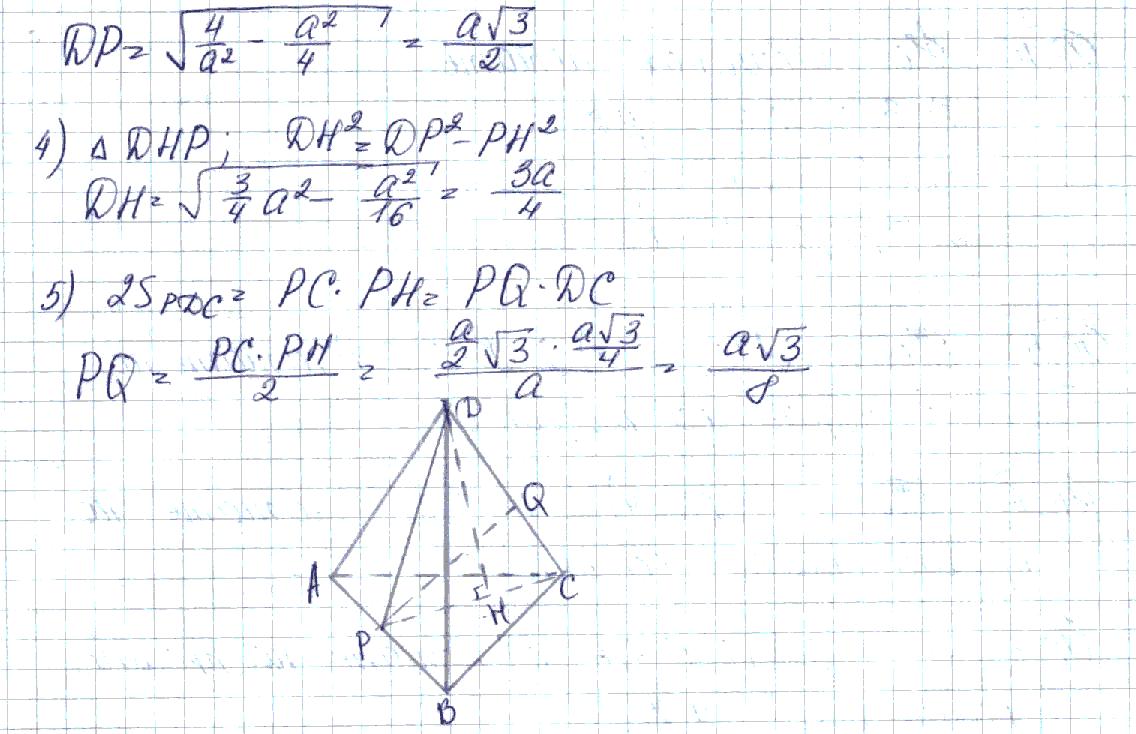 DP = √(4/a² - a²/4) = a√3/2
4) △ DHP; DH² = DP² - PH²
DH = √(3/4 a² - a²/16) = 3a/4
5) 2S_PDC = PC · PH = PQ · DC
PQ = PC · PH/2 = (a/2 √3 · a√3/4)/a = a√3/8
D
Q
A
C
H
P
B